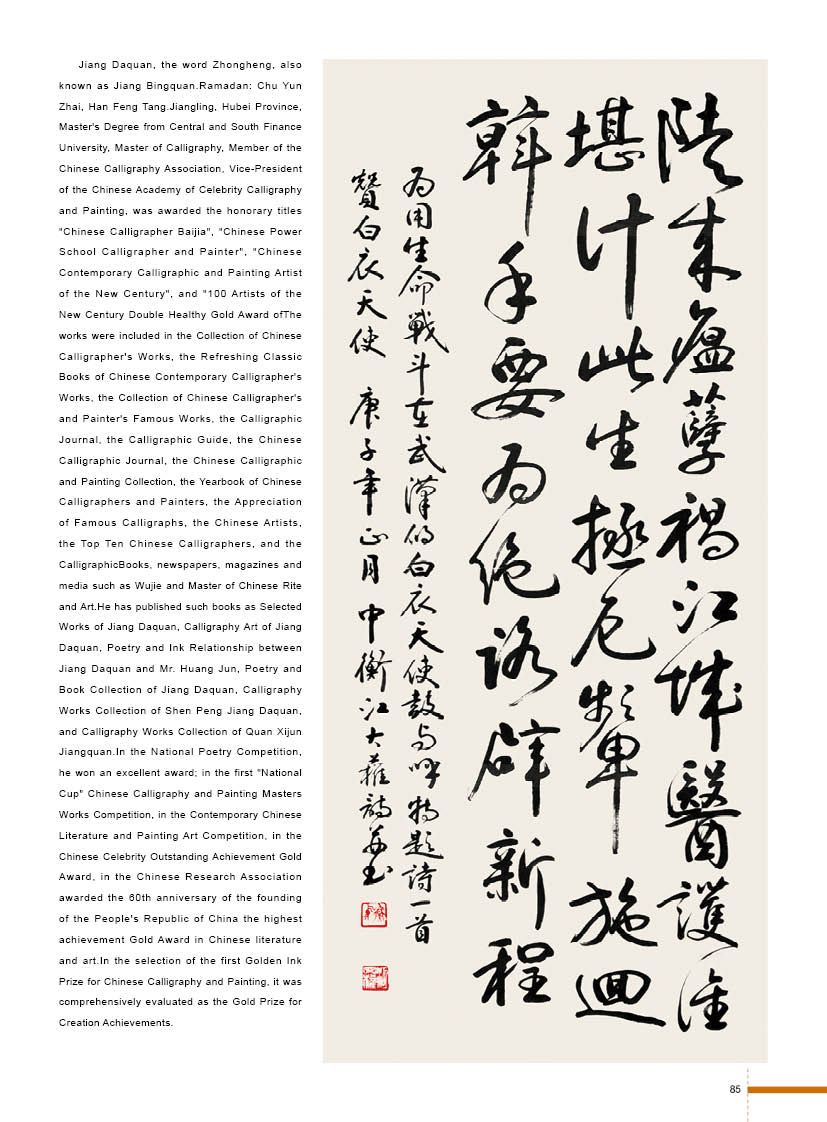 Jiang Daquan, the word Zhongheng, also
known as Jiang Bingquan.Ramadan: Chu Yun
Zhai, Han Feng Tang.Jiangling, Hubei Province,
Master's Degree from Central and South Finance
University, Master of Calligraphy, Member of the
Chinese Calligraphy Association, Vice-President
of the Chinese Academy of Celebrity Calligraphy
and Painting, was awarded the honorary titles
"Chinese Calligrapher Baijia", "Chinese Power
School Calligrapher and Painter", "Chinese
Contemporary Calligraphic and Painting Artist
of the New Century", and "100 Artists of the
New Century Double Healthy Gold Award ofThe
works were included in the Collection of Chinese
Calligrapher's Works, the Refreshing Classic
Books of Chinese Contemporary Calligrapher's
Works, the Collection of Chinese Calligrapher's
and Painter's Famous Works, the Calligraphic
Journal, the Calligraphic Guide, the Chinese
Calligraphic Journal, the Chinese Calligraphic
and Painting Collection, the Yearbook of Chinese
Calligraphers and Painters, the Appreciation
of Famous Calligraphs, the Chinese Artists,
the Top Ten Chinese Calligraphers, and the
CalligraphicBooks, newspapers, magazines and
media such as Wujie and Master of Chinese Rite
and Art.He has published such books as Selected
Works of Jiang Daquan, Calligraphy Art of Jiang
Daquan, Poetry and Ink Relationship between
Jiang Daquan and Mr. Huang Jun, Poetry and
Book Collection of Jiang Daquan, Calligraphy
Works Collection of Shen Peng Jiang Daquan,
and Calligraphy Works Collection of Quan Xijun
Jiangquan.In the National Poetry Competition,
he won an excellent award; in the first "National
Cup" Chinese Calligraphy and Painting Masters
Works Competition, in the Contemporary Chinese
Literature and Painting Art Competition, in the
Chinese Celebrity Outstanding Achievement Gold
Award, in the Chinese Research Association
awarded the 60th anniversary of the founding
of the People's Republic of China the highest
achievement Gold Award in Chinese literature
and art.In the selection of the first Golden Ink
Prize for Chinese Calligraphy and Painting, it was
comprehensively evaluated as the Gold Prize for
Creation Achievements.
陡來瘟孽禍江城醫護誰
堪計此生拯厄顰施迴
斡手要為絕路辟新程
為用生命戰斗在武漢的白衣天使鼓与呼特題詩一首
贊白衣天使 庚子年正月中衡江大權詩并書
85